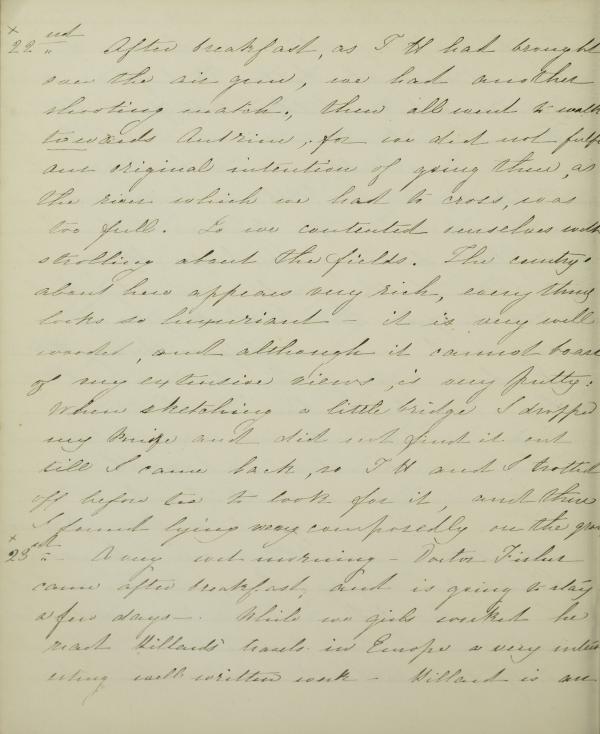 22nd After breakfast, as T H had brought
over the air gun, we had another
shooting match, then all went to walk
towards Antrim, for we did not fulfil
our original intention of going there, as
the river which we had to cross, was
too full. So we contented ourselves with
strolling about the fields. The country
about here appears very rich, every thing
looks so luxuriant – it is very well
wooded, and although it cannot boast
of any extensive views, is very pretty.
When sketching a little bridge I dropped
my knife and did not find it out
till I came back, so T H and I trotted
off before tea to look for it, and there
I found lying very composedly on the
23rd – A very wet morning – Doctor Fisher
came after breakfast, and is going to stay
a few days –. While we girls worked he
read Hillards travels in Europe a very inter
esting well written work – Hillard is an